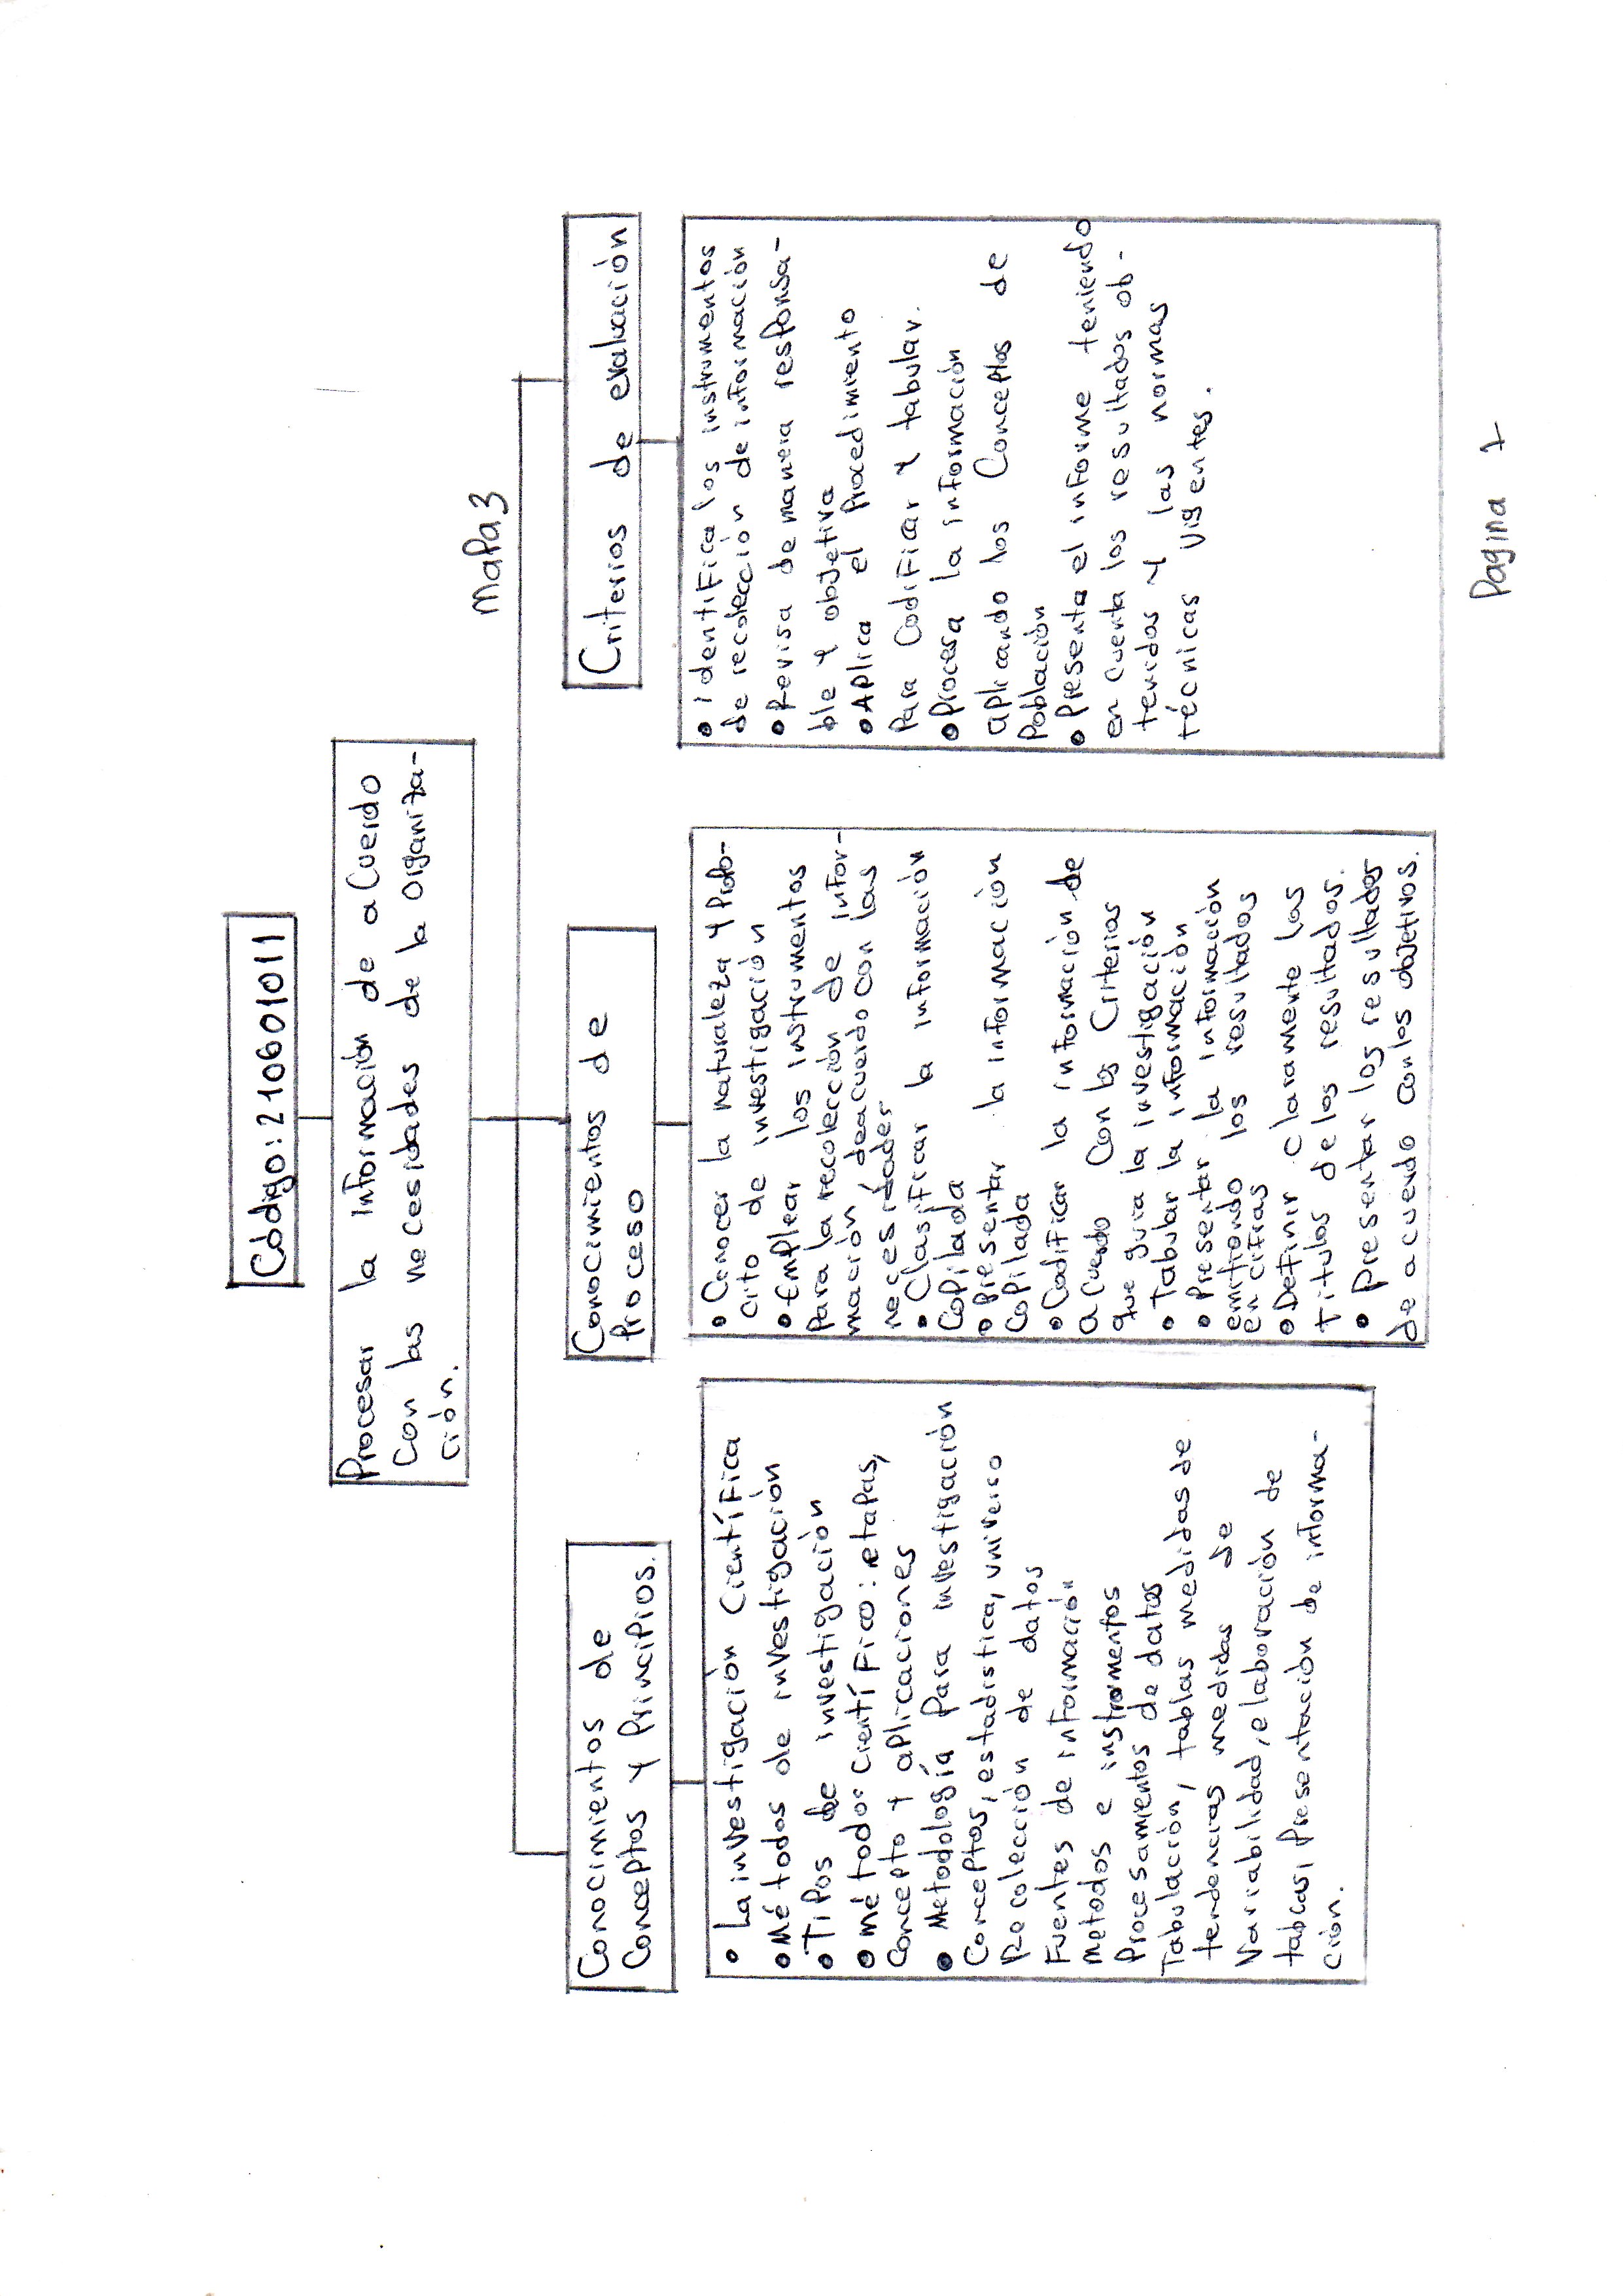 Código: 210601011
Procesar la información de acuerdo
con las necesidades de la organiza-
ción.
Mapa 3
Conocimientos de
Conceptos y Principios.
• La investigación Científica
• Métodos de investigación
• Tipos de investigación
• método: científico: etapas,
Concepto y aplicaciones
• Metodología para investigación
Conceptos, estadistica, universo
Recolección de datos
Fuentes de información
Metodos e instrumentos
Procesamientos de datos
Tabulación, tablas medidas de
tendencias medidas de
Variabilidad, elaboración de
tablas, Presentación de informa-
ción.
Conocimientos de
Proceso
• Conocer la naturaleza y Propo-
cito de investigación
• Emplear los instrumentos
Para la recolección de infor-
mación deacuerdo con las
necesidades
• Clasificar la información
Copilada
• Presentar la información
Copilada
• Codificar la información de
acuerdo con los Criterios
que guia la investigación
• Tabular la información
• Presentar la información
emitiendo los resultados
en cifras
• Definir claramente los
titulos de los resultados.
• Presentar los resultados
de acuerdo con los objetivos.
Criterios de evaluación
• Identifica los instrumentos
de recolección de información
• Revisa de manera responsa-
ble y objetiva
• Aplica el Procedimiento
Para Codificar y tabular.
• Procesa la información
aplicando los Conceptos de
Población
• Presenta el informe teniendo
en cuenta los resultados ob-
tenidos y las normas
técnicas vigentes.
Pagina 1